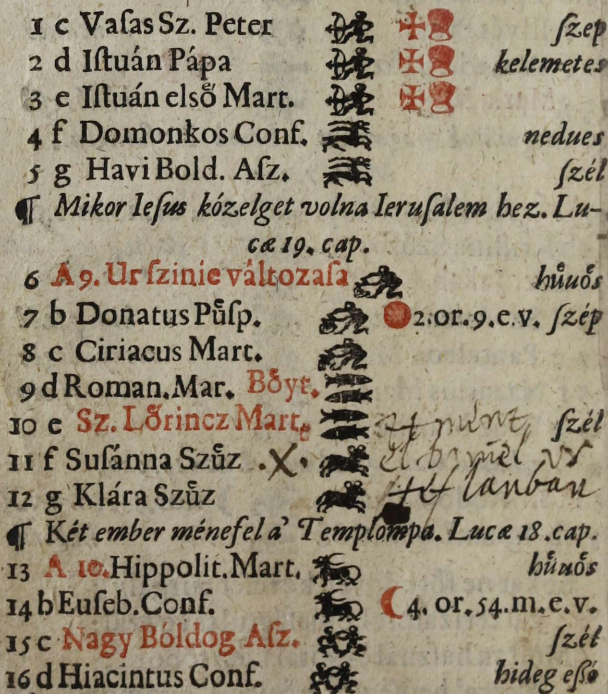 1 c Vaſas Sz. Peter ſzep
2 d Iſtuán Pápa kelemetes
3 e Iſtuán elsoͤ Mart.
4 f Domonkos Conf. nedues
5 g Havi Bold. Aſz. ſzél
¶ Mikor Ieſus kózelget volna Ieruſalem hez. Lu-
cæ 19. cap.
6 A 9. Ur ſzinie változaſa huͤuoͤs
7 b Donatus Puͤſp. 2. or. 9. e. v. ſzép
8 c Ciriacus Mart.
9 d Roman. Mar. Boͤyt.
10 e Sz. Loͤrincz Mart. ment ſzél
11 f Suſánna Szuͤz .X.
12 g Klára Szuͤz
¶ Két ember ménefel a' Templompa. Lucæ 18. cap.
13 A 10. Hippolit. Mart. huͤuoͤs
14 b Euſeb. Conf. 4. or. 54. m. e. v.
15 c Nagy Bóldog Aſz. ſzél
16 d Hiacintus Conf. hideg eſſó